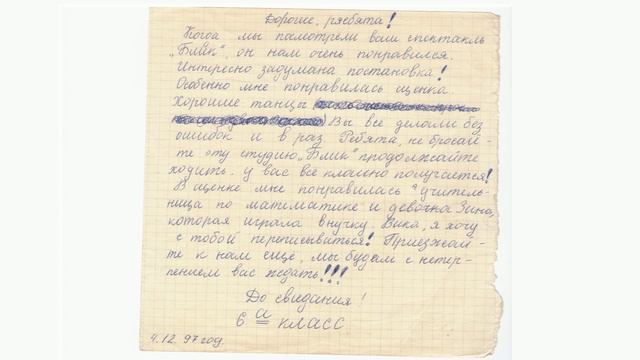 Дорогие, ребята!
Когда мы посмотрели ваш спектакль
„Блик", он нам очень понравился.
Интересно задумана постановка!
Особенно мне понравилась сценка.
Хорошие танцы
Вы все делали без
ошибок и в раз. Ребята, не бросай-
те эту студию „Блик" продолжайте
ходить. у вас всё классно получается!
В сценке мне понравилась "учитель-
ница по математике и девочка Зина,
которая играла внучку. Вика, я хочу
с тобой переписываться! Приезжай-
те к нам ещё, мы будем с нетер-
пением вас ждать!!!
До свидания!
6 а класс
4.12.97 год.